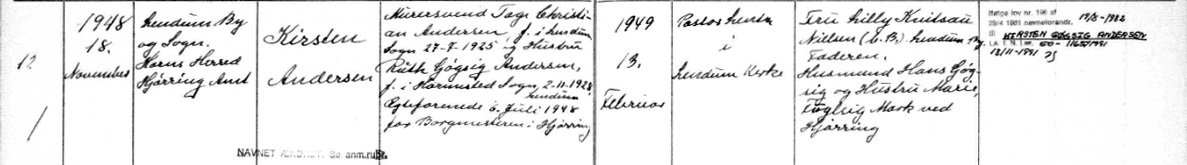 12
1948
18.
November
Lendum By
og Sogn.
Horns Herred
Hjørring Amt
Kirsten
Andersen
Murersvend Tage Christi-
an Andersen, f. i Lendum
Sogn 27-7-1925 og Hustru
Ruth Gøgsig Andersen,
f. i Hormested Sogn, 2-11-1928
Lendum
Ægteforenede 6. Juli 1948
for Borgmesteren i Hjørring
1949
13.
Februar
Pastor
i
Lendum Kirke
Fru Lilly Knitsau
Nielsen (C.B.) Lendum By,
Faderen,
Husmand Hans Gøg-
sig og Hustru Marie,
Føglsig Mark ved
Hjørring
Ifølge lov nr. 196 af
29/4 1981 navneforandr. 13/8-1982
til KIRSTEN GØGSIG ANDERSEN
13/11-1991
NAVNET ÆNDRET. Se anm.rubr.